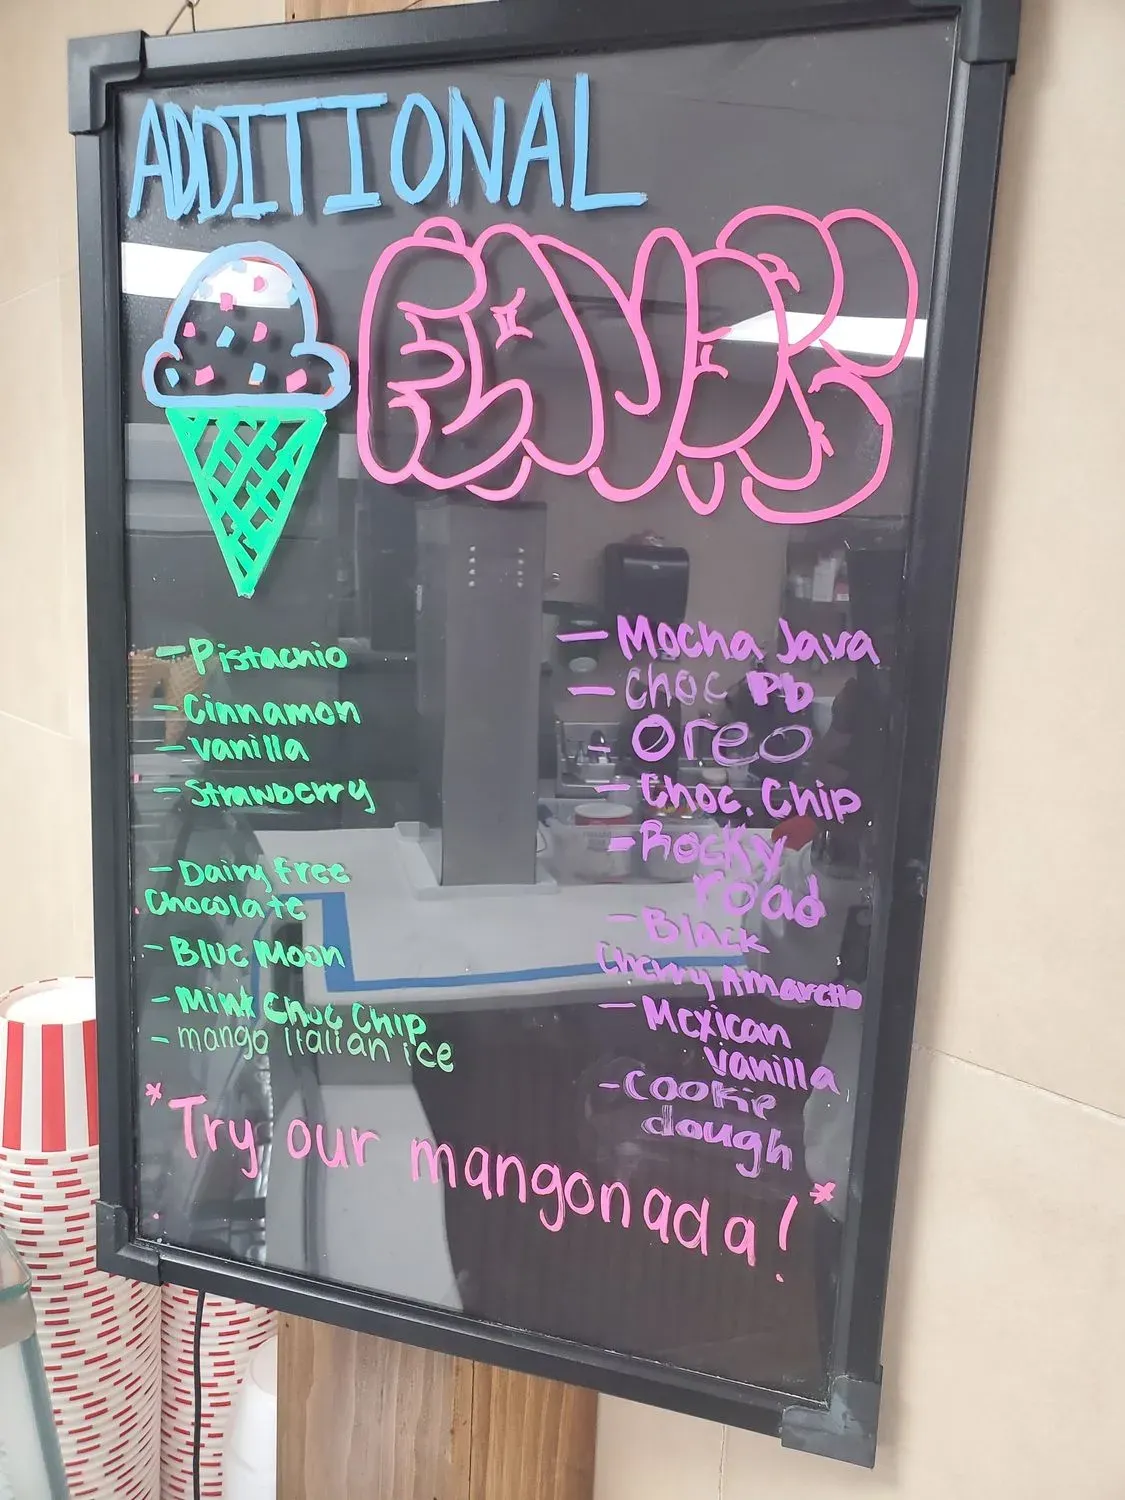 ADDITIONAL
FLAVORS
- Pistachio
- Cinnamon
- Vanilla
- Strawberry
- Dairy Free
Chocolate
- Blue Moon
- Mink Choc Chip
- mango Italian ice
- Mocha Java
- Choc PB
- Oreo
- Choc. Chip
- Rocky
road
- Black
Cherry Amaretto
- Mexican
Vanilla
- Cookie
dough
* Try our mangonada! *